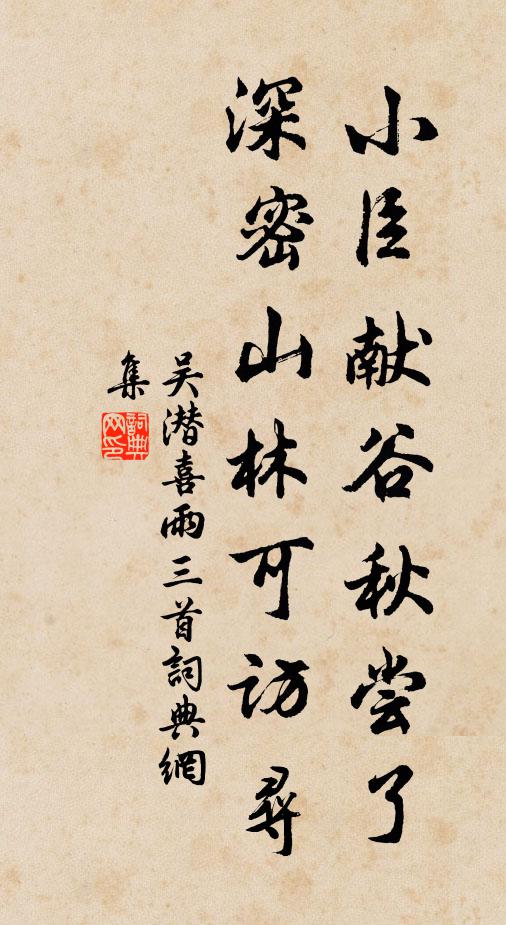 小臣献谷秋尝了
深密山林可访寻
吴潜喜雨三首詞典網
集
詞典
网印